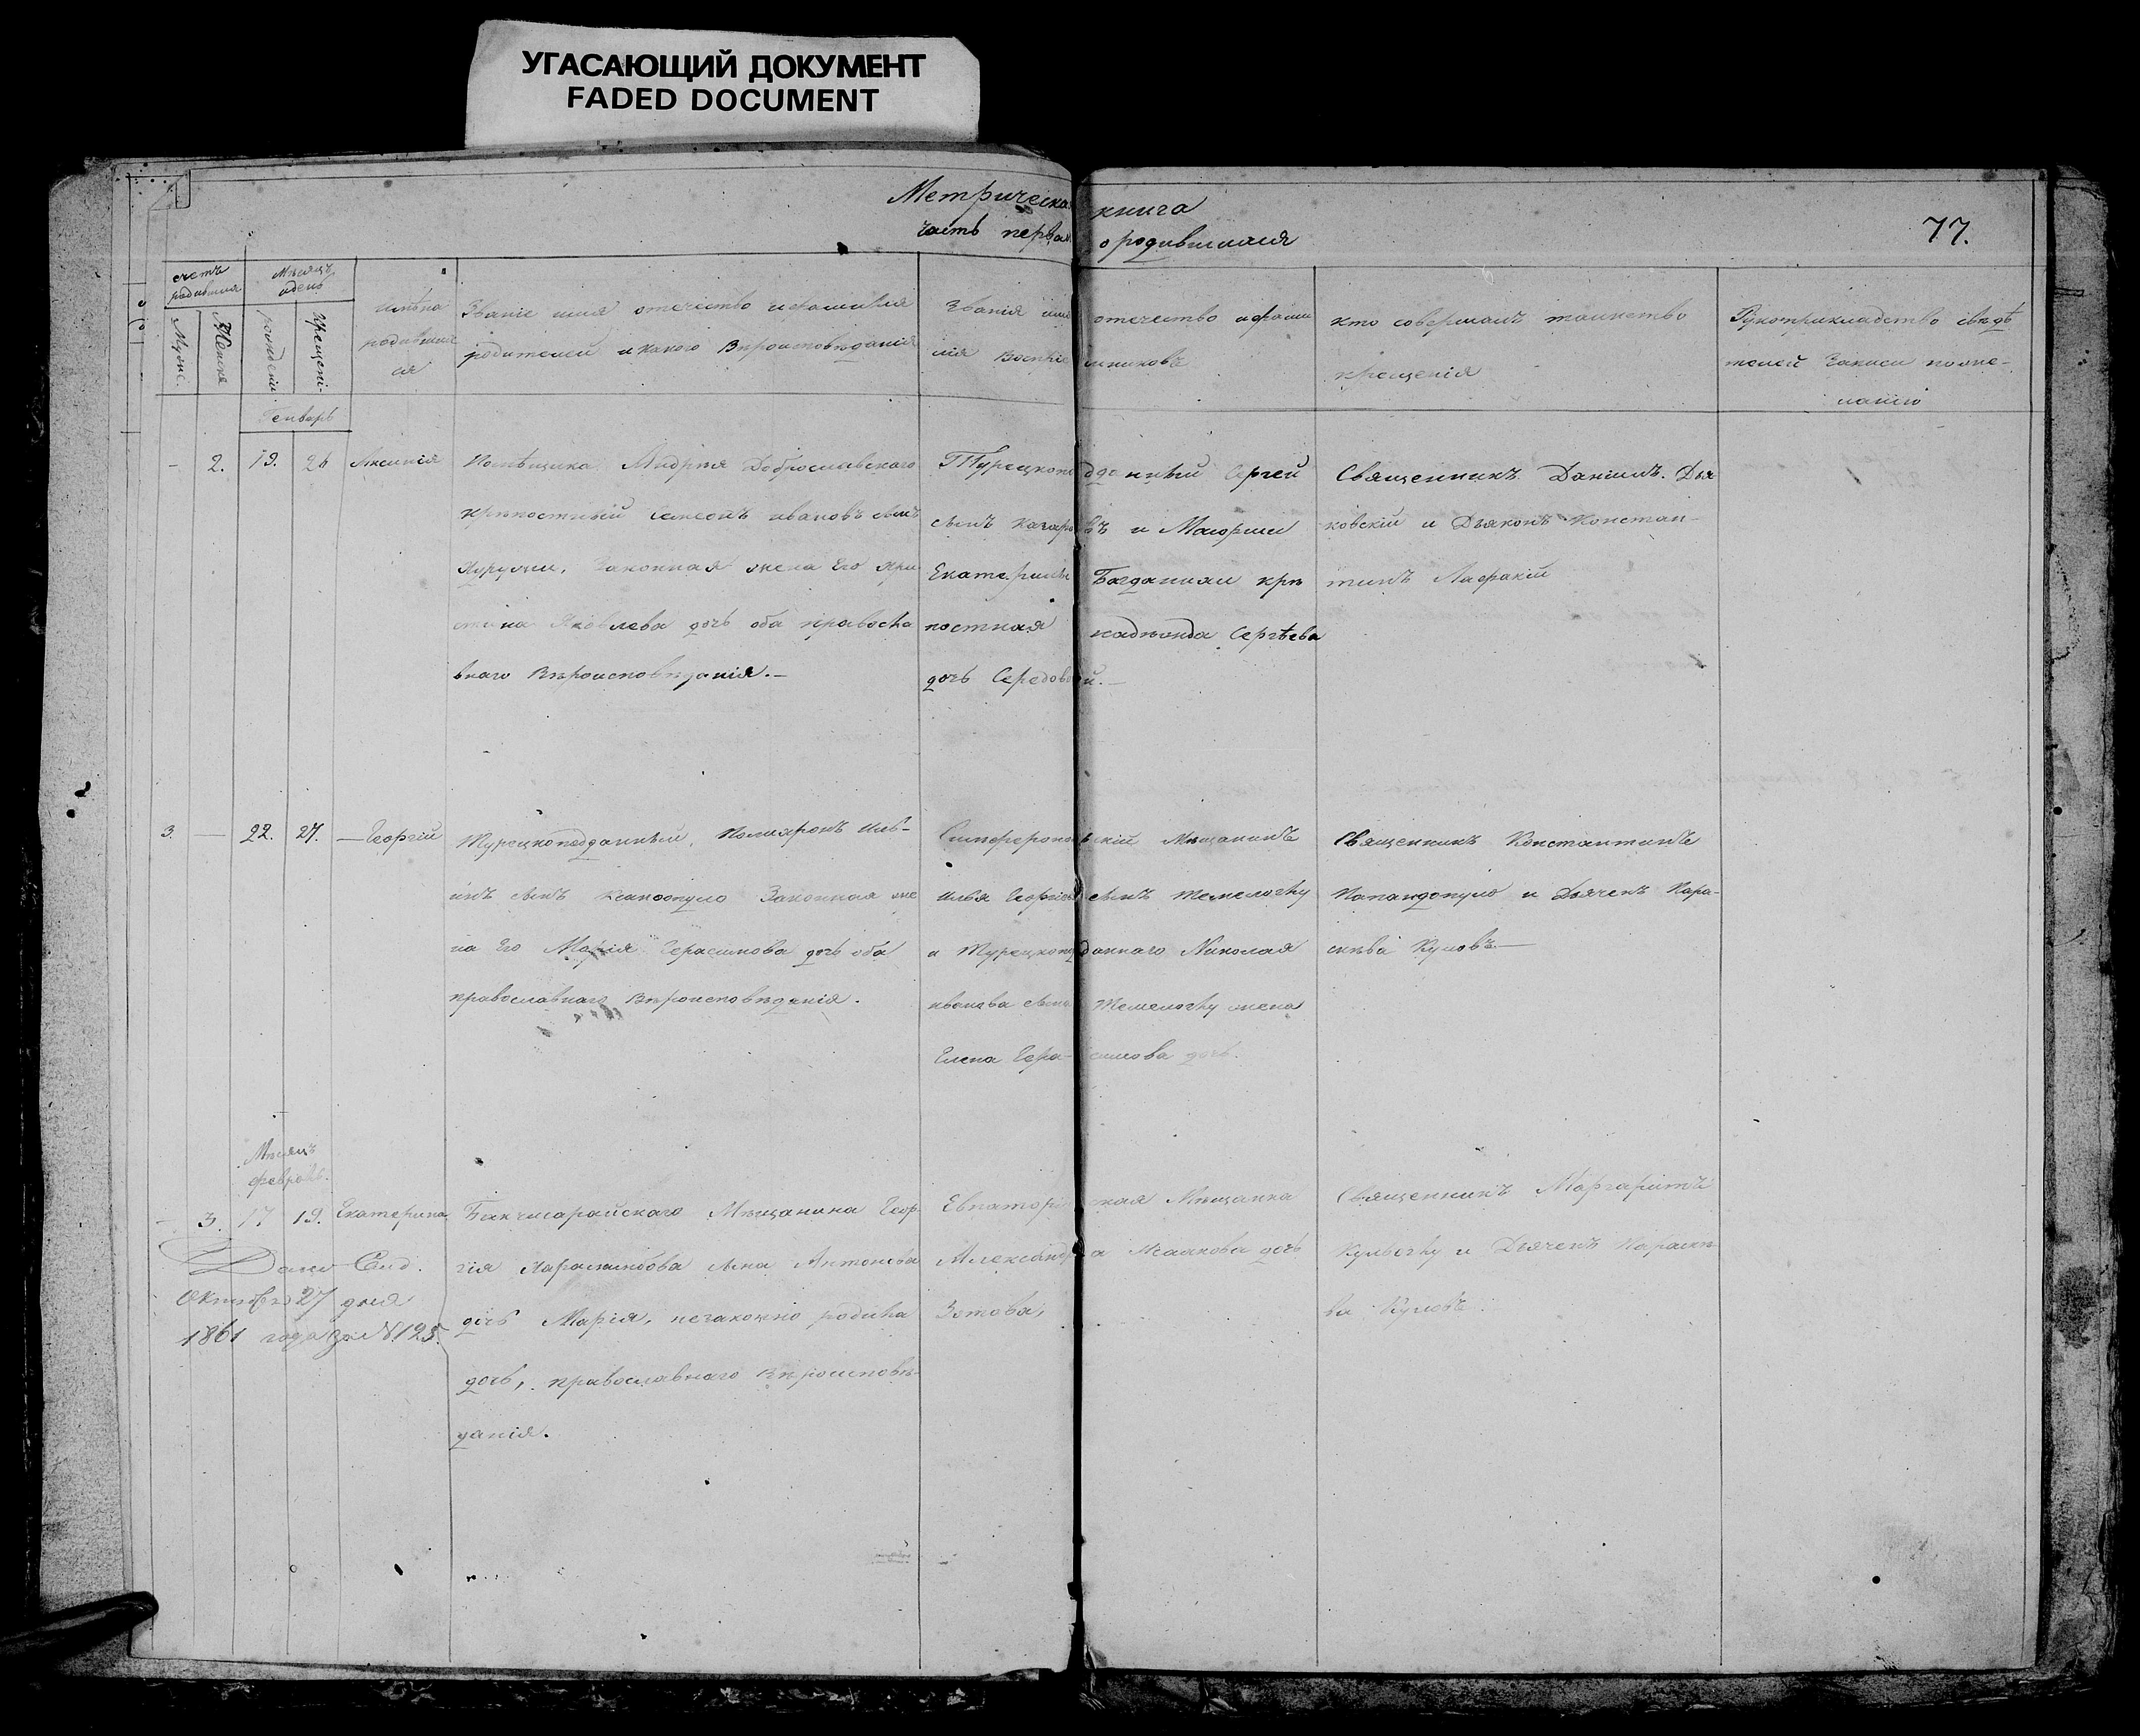 УГАСАЮЩИЙ ДОКУМЕНТ
FADED DOCUMENT
Метрическая книга
часть первая о родившихся
77.
счетъ родившихся
Мѣсяцъ и день
Мужс.
Женск
рожденія
крещені-
имѣна
родивших
ся
Званіе имя отечество и фамилія
родителей и какого Вѣроисповѣданія
Званія имя отечество и фами
лія Воспріемниковъ
кто совершалъ таинство
крещенія
Рукоприкладство свидѣ
телей записи по же-
ланію
Генваръ
- 2. 19. 26 Аксинія
Помѣщика Андрея Доброславского
крѣпостный семенъ ивановъ сынъ
законная жена Его Хри
стина Яковлева дочь оба правосла
внаго Вѣроисповѣданія.-
Турецкоподданный Сергей
сынъ и Маіорши
Екатерины Богданіяи крѣ
постная надѣжда Сергѣева
дочь Середовой.-
Священникъ Даніилъ. Дья
ковскій и Дьяконъ Констан-
тинъ
3. — 22. 27. — Георгій
Турецкоподданный, Поликронъ Иль-
инъ сынъ Законная же
на Его Марія Герасимова дочь оба
православнаго Вѣроисповѣданія.
Симферопольскій Мѣщанинъ
Илья Георгіевъ сынъ Темелогку
и Турецкоподданнаго Николая
иванова сына Темелогку жена
Елена Гера- симова дочь.
Священникъ Константинъ
Попандопуло и Дьячекъ Пара-
скѣва Куловъ.—
Мѣсяцъ
февраль.
- 3. 17 19. Екатерина
Дано Свид.
Октября 27 дня
1861 года за №125.
Бакчисарайскаго Мѣщанина Геор-
гія Харалампова сына Антонова
дочь Марія, незаконно родила
дочь, православнаго Вѣроисповѣ-
данія.
Евпаторійская Мѣщанка
Александра Исаакова дочь
Зотова,
Священникъ Маргаритъ
и Дьячекъ Параскѣ
ва Куловъ.